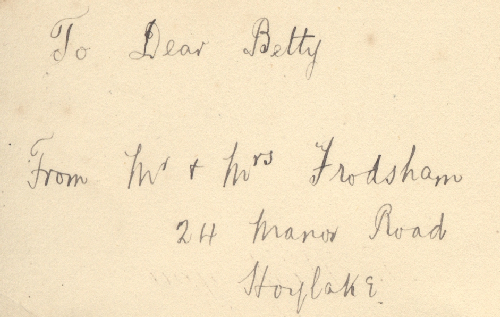 To Dear Betty
From Mr + Mrs Frodsham
24 Manor Road
Hoylake.